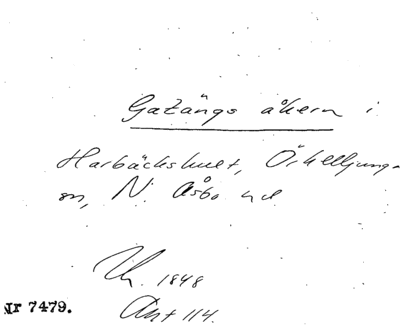 Gatängs åkern i
Harbäckshult, Örkelljunga
sn, N. Åsbo hd
Uh. 1848
Ant 114.
Nr 7479.